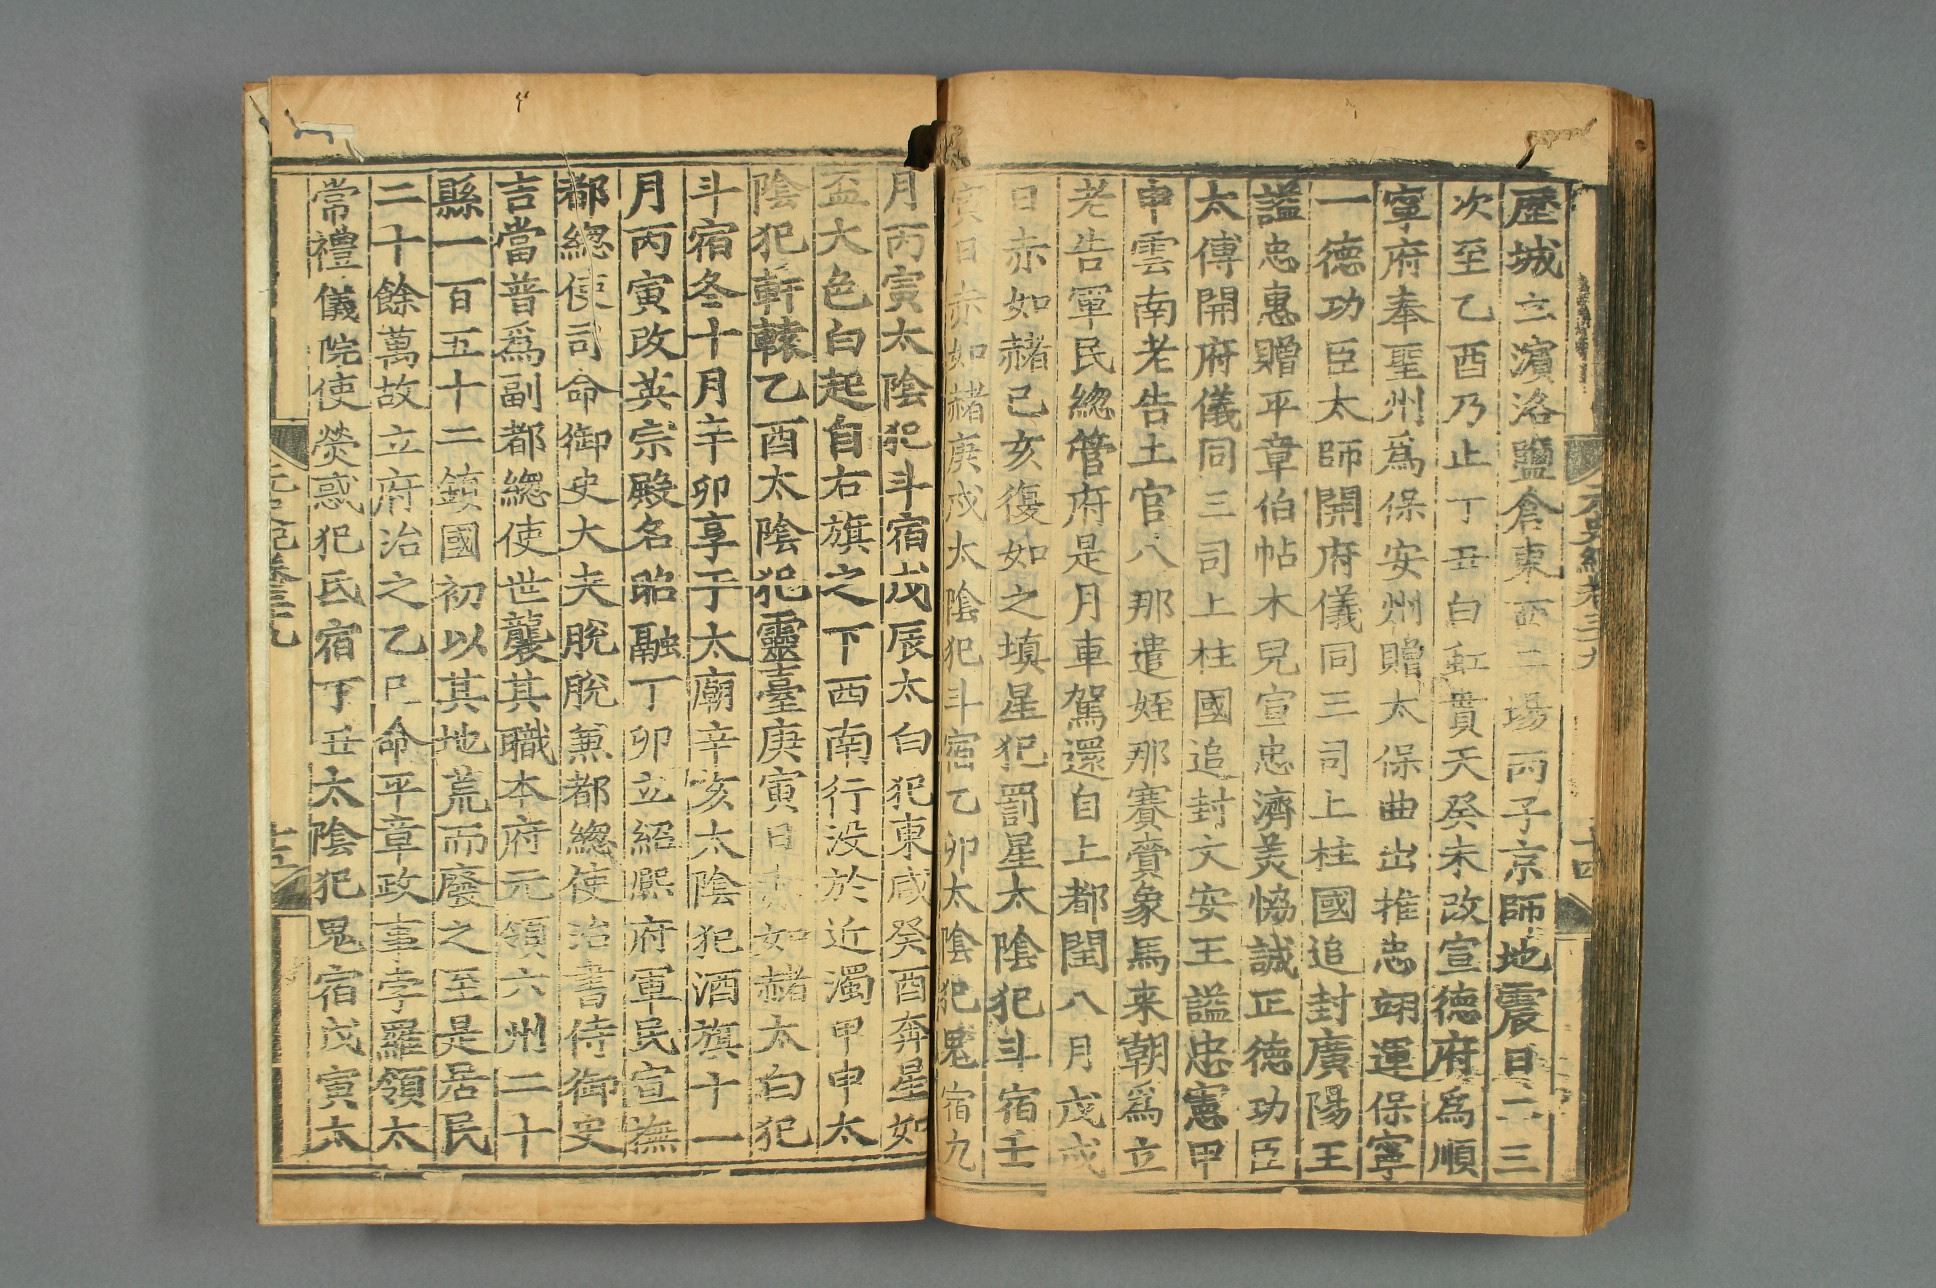 元史紀卷三十九
十四
歷城立濱洛鹽倉東西二場丙子京師地震日二三
次至乙酉乃止丁丑白虹貫天癸未改宣德府爲順
寧府奉聖州爲保安州贈太保曲出推忠翊運保寧
一德功臣太師開府儀同三司上柱國追封廣陽王
謚忠惠贈平章伯帖木兒宣忠濟美恊誠正德功臣
太傅開府儀同三司上柱國追封文安王謚忠憲甲
申雲南老告土官八那遣姪那賽賫象馬来朝爲立
老告軍民緫管府是月車駕還自上都閏八月戊戌
日赤如赭己亥復如之填星犯罰星太陰犯斗宿壬
寅日赤如赭庚戌太陰犯斗宿乙卯太陰犯鬼宿九
月丙寅太陰犯斗宿戊辰太白犯東咸癸酉奔星如
盃大色白起自右旗之下西南行没於近濁甲申太
陰犯軒轅乙酉太陰犯靈臺庚寅日赤如赭太白犯
斗宿冬十月辛卯享于太廟辛亥太陰犯酒旗十一
月丙寅改英宗殿名昭融丁卯立紹熙府軍民宣撫
都緫使司命御史大夫脫脫兼都緫使治書侍御史
吉當普爲副都緫使世襲其職本府元領六州二十
縣一百五十二鎮國初以其地荒而廢之至是居民
二十餘萬故立府治之乙巳命平章政事孛羅領太
常禮儀院使熒惑犯氐宿丁丑太陰犯鬼宿戊寅太
元史紀卷三十九